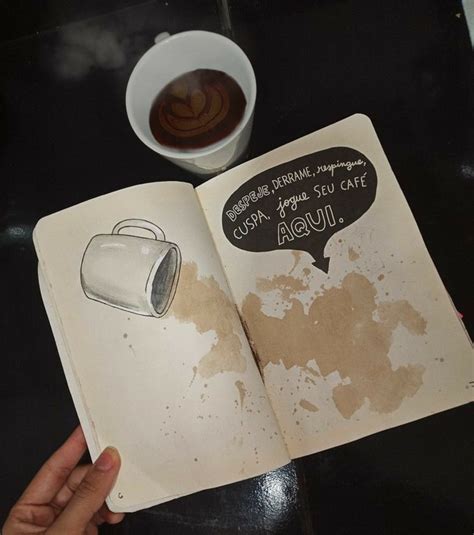 DESPEJE, DERRAME, respingue,
CUSPA, jogue SEU CAFÉ
AQUI.
6